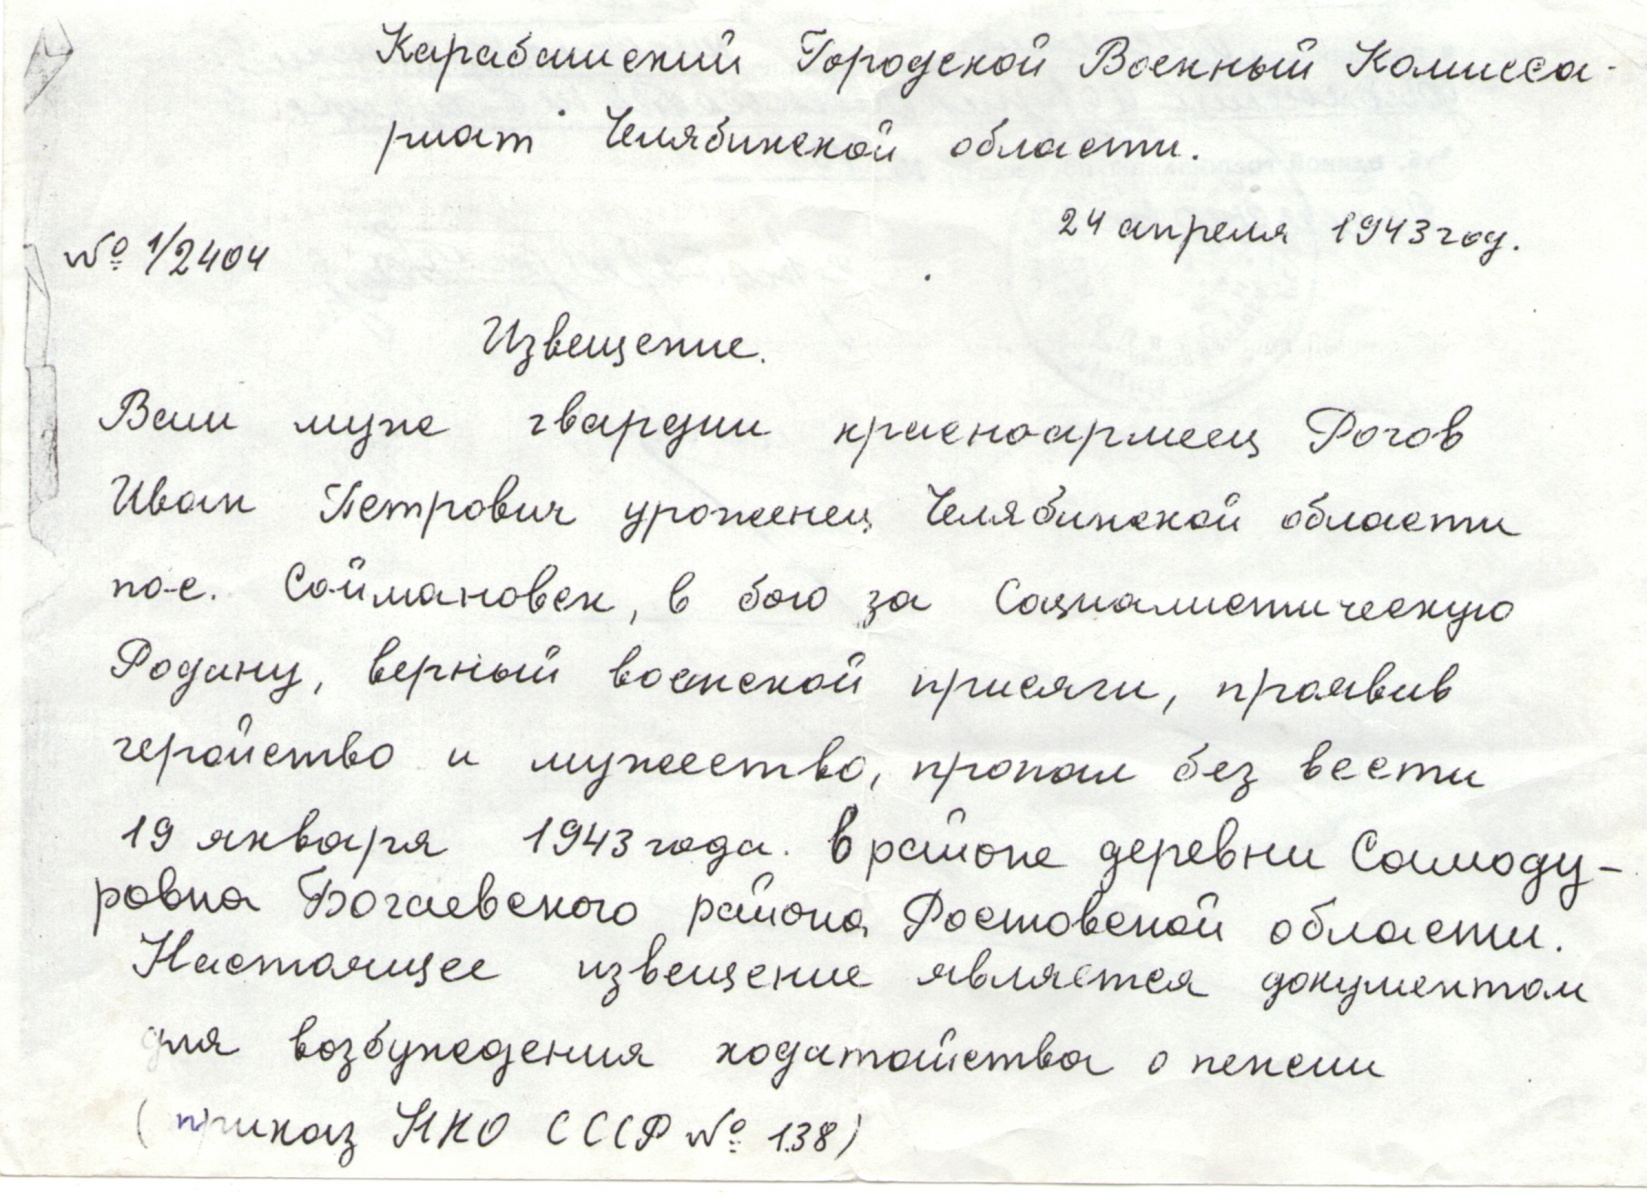 Карабашский Городской Военный Комисса-
риат Челябинской области.
24 апреля 1943 год.
№ 1/2404
Извещение.
Ваш муж гвардии красноармеец Рогов
Иван Петрович уроженец Челябинской области
пос. Соймановск, в бою за Социалистическую
Родину, верный воинской присяги, проявив
геройство и мужество, пропал без вести
19 января 1943 года. в районе деревни Самоду-
ровка Богаевского района Ростовской области.
Настоящее извещение является документом
для возбуждения ходатайства о пенсии
(приказ НКО СССР № 138)